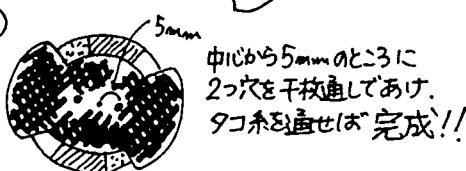 5mm
中心から5mmのところに
2つ穴を千枚通しであけ.
タコ糸を通せば 完成!!